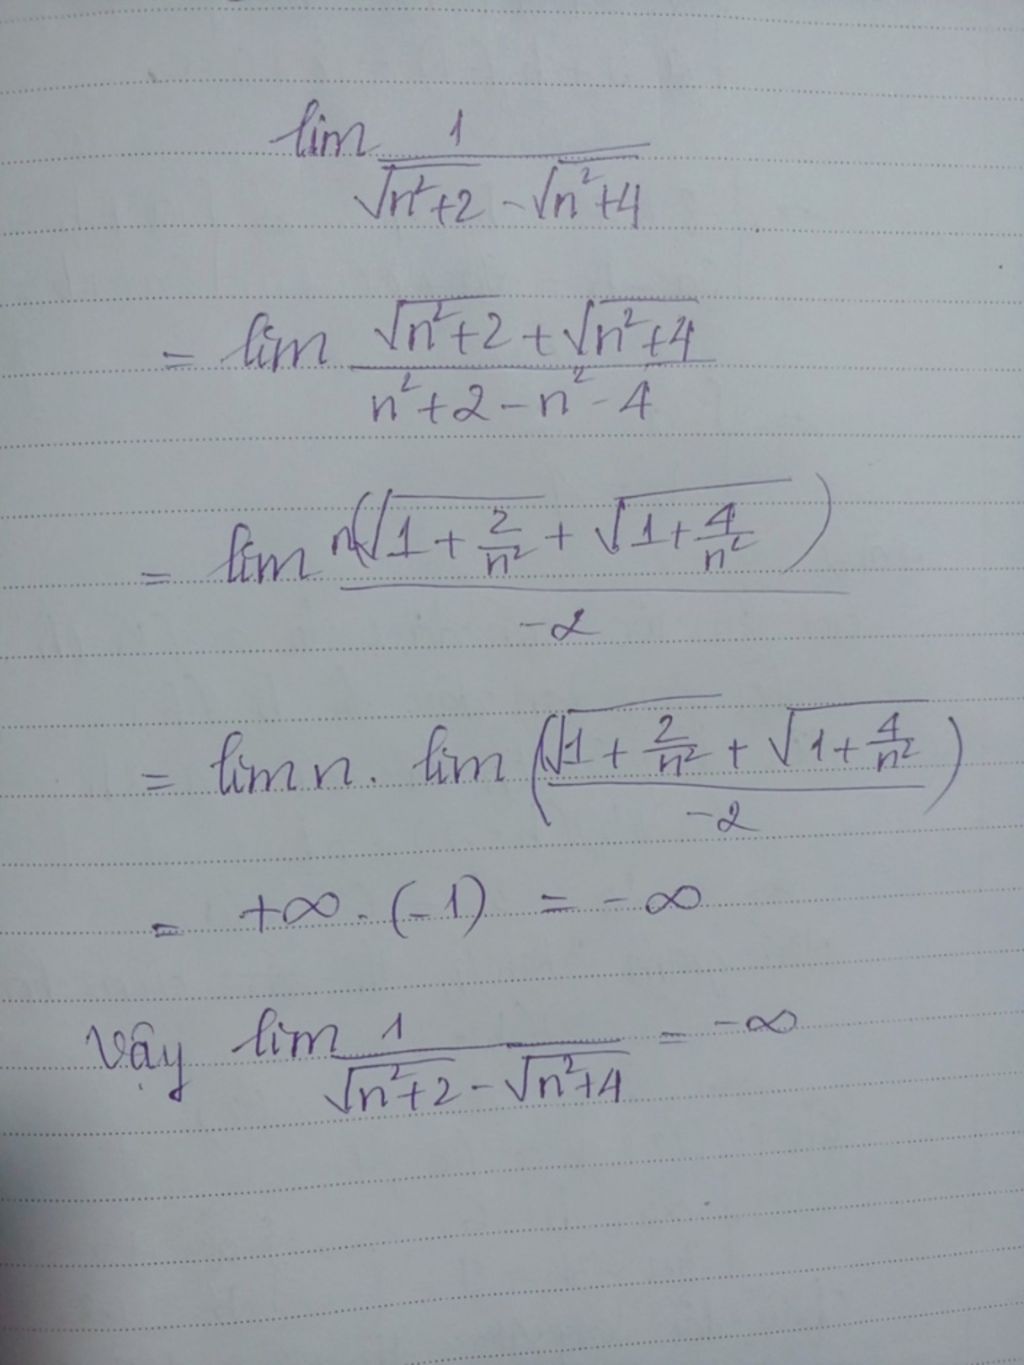 lim 1/(√(n²+2) - √(n²+4))
= lim (√(n²+2) + √(n²+4))/(n²+2-n²-4)
= lim n(√(1+2/n²) + √(1+4/n²))/-2
= lim n. lim ((√(1+2/n²) + √(1+4/n²))/-2)
= +∞.(-1) = -∞
Vậy lim 1/(√(n²+2) - √(n²+4)) = -∞